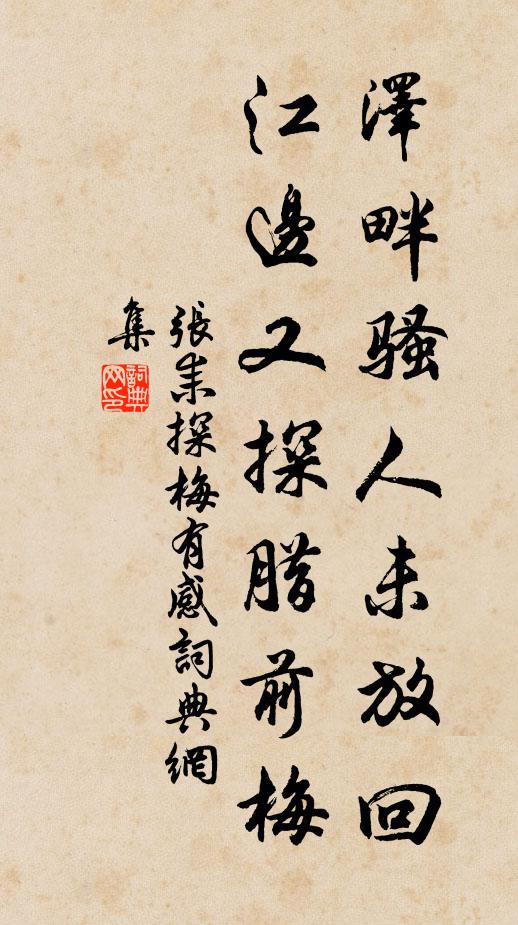 澤畔騷人未放回
江邊又探腊前梅
張耒探梅有感詞典網
集
詞典網印